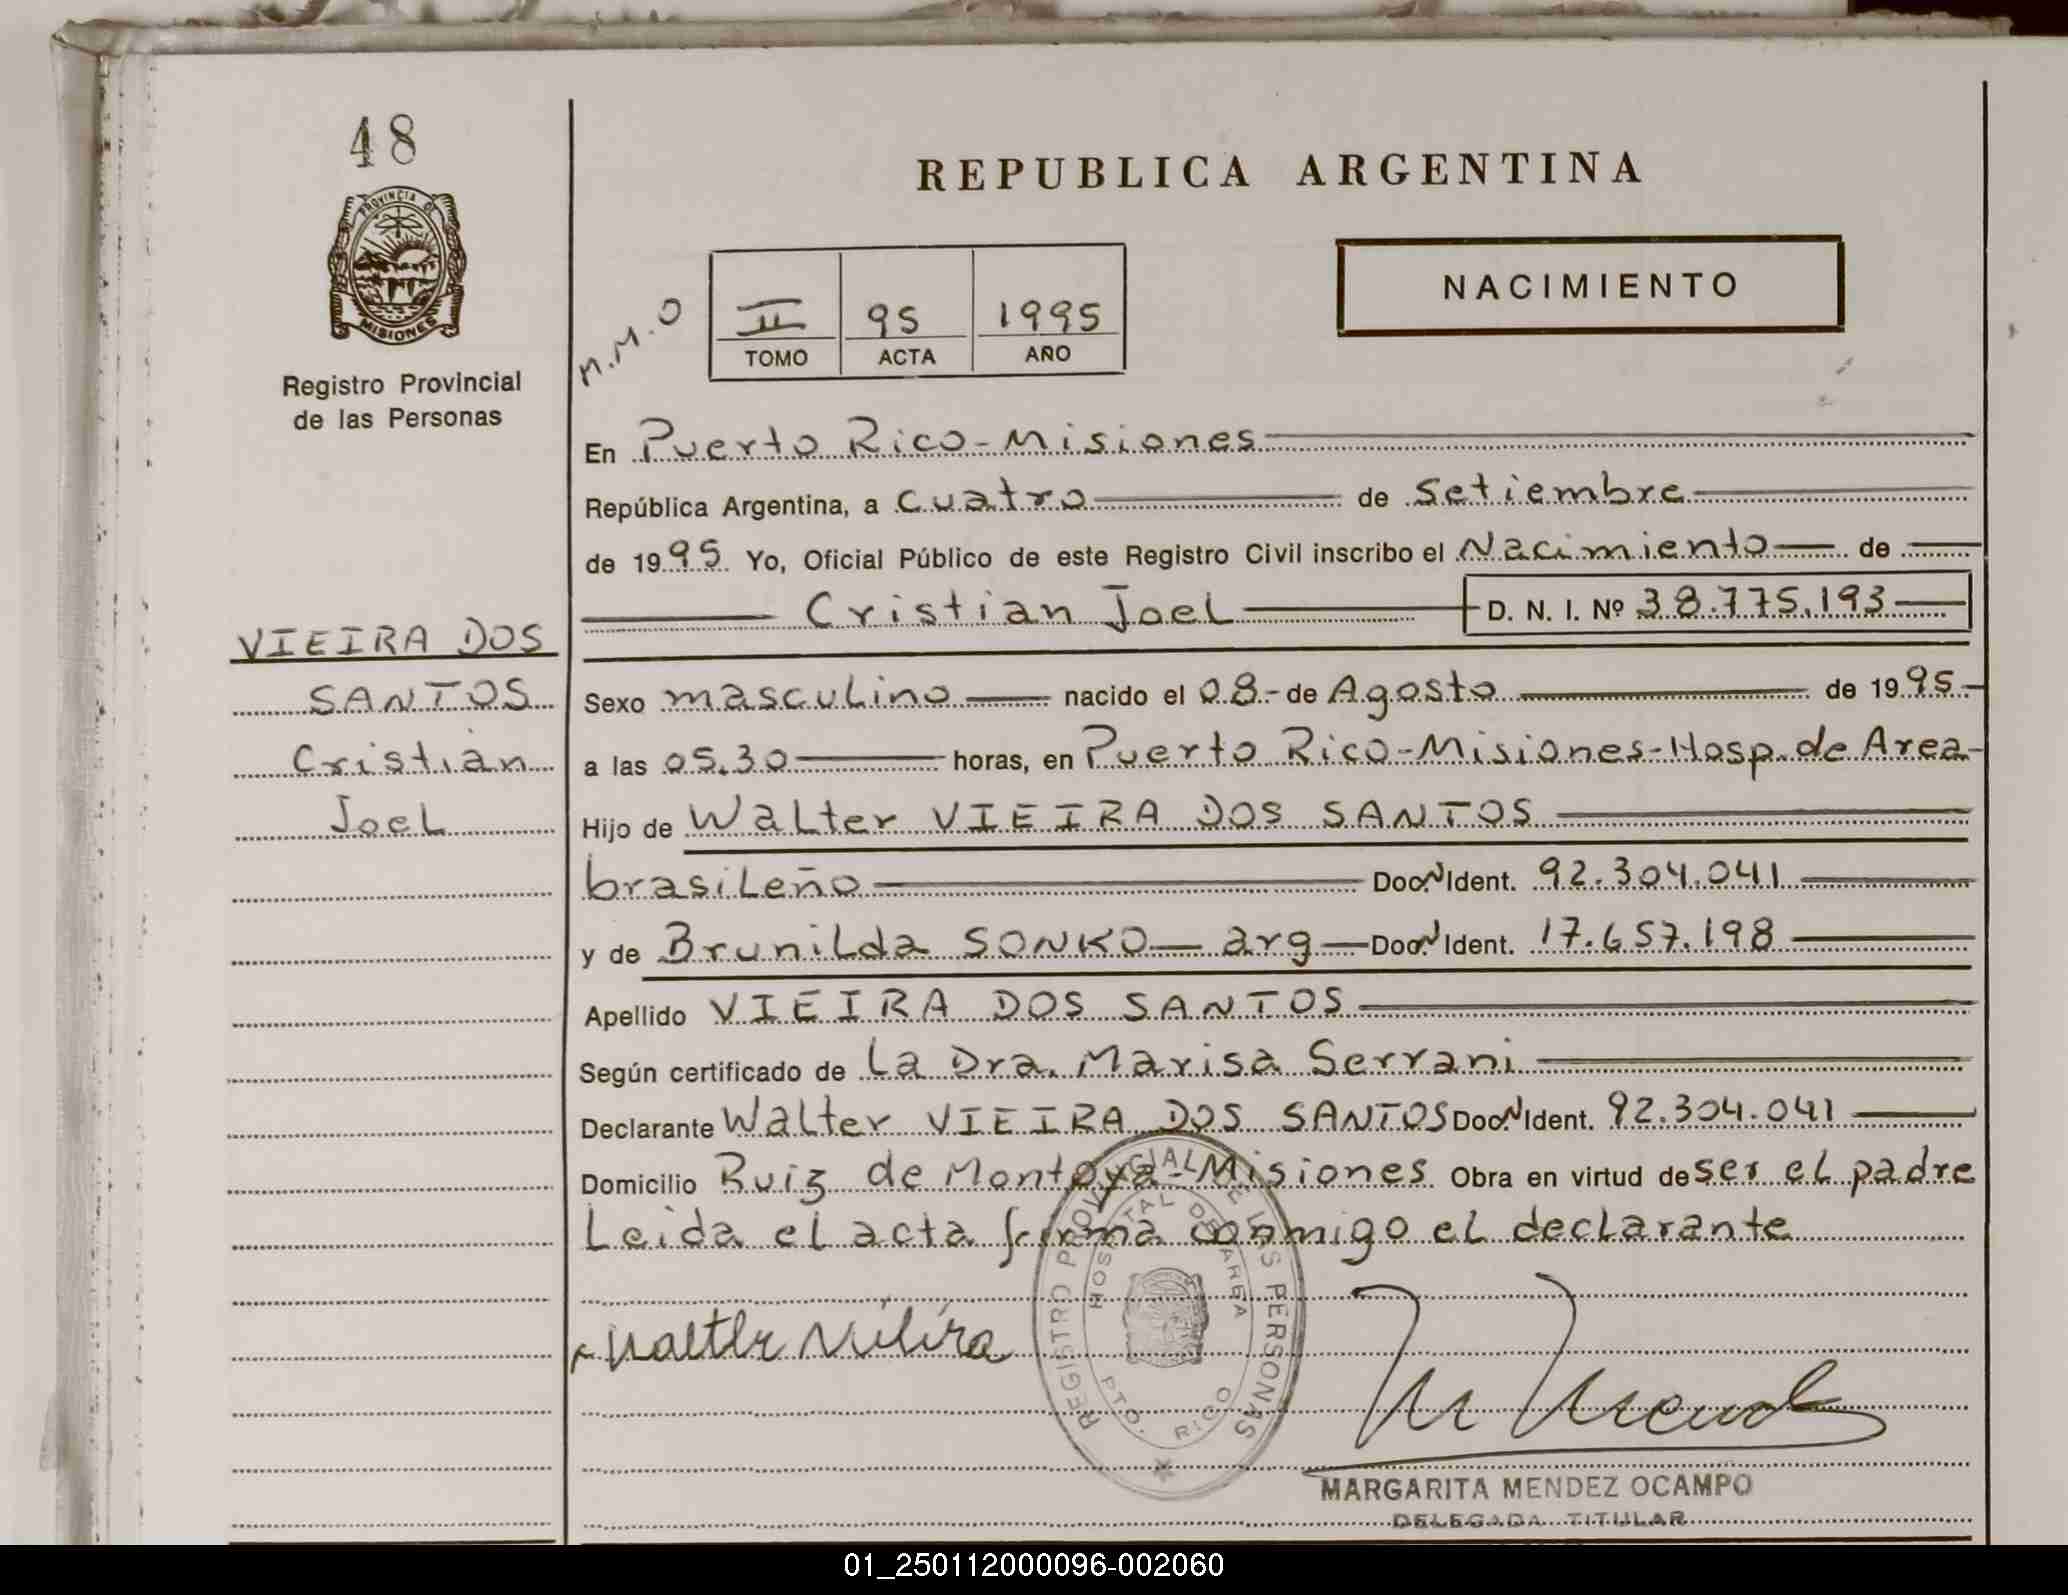 48
PROVINCIA DE
MISIONES
Registro Provincial
de las Personas
REPUBLICA ARGENTINA
NACIMIENTO
M.M.O
II 95 1995
TOMO ACTA AÑO
En Puerto Rico - Misiones
República Argentina, a cuatro de setiembre
de 1995 Yo, Oficial Público de este Registro Civil inscribo el Nacimiento de
Cristian Joel D. N. I. Nº 38.775.193
VIEIRA DOS
SANTOS
Cristian
Joel
Sexo masculino nacido el 08- de Agosto de 1995-
a las 05.30 horas, en Puerto Rico-Misiones-Hosp. de Area-
Hijo de Walter VIEIRA DOS SANTOS
brasileño Doc. N Ident. 92.304.041
y de Brunilda SONKO - arg - Doc. N Ident. 17.657.198
Apellido VIEIRA DOS SANTOS
Según certificado de La Dra. Marisa Serrani
Declarante Walter VIEIRA DOS SANTOS Doc. N Ident. 92.304.041
Domicilio Ruiz de Montoya-Misiones Obra en virtud de ser el padre
Leida el acta firma conmigo el declarante
Walter Vieira
REGISTRO PROVINCIAL DE LAS PERSONAS
HOSPITAL DE AREA
PTO. RICO
MARGARITA MENDEZ OCAMPO
DELEGADA TITULAR
01_250112000096-002060